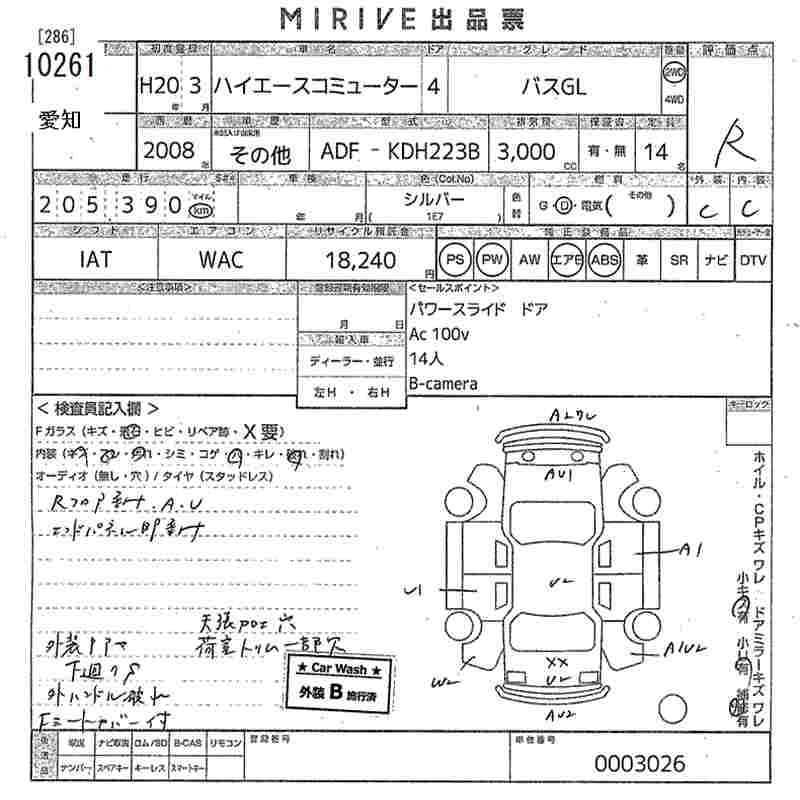 MIRIVE 出品票
[286]
10261
愛知
初度登録 車名 ドア グレード 駆動 評価点
H20 3 ハイエースコミューター 4 バスGL 2WD
年 月 4WD
西暦 車歴 型式 排気量 保証書 定員
2008 年 その他 ADF - KDH223B 3,000 CC 有・無 14 名 R
走行 車検 色(Col.No) 燃料 外装 内装
205,390 マイル km 年 月 シルバー ( 1E7 ) 色替 G・D・電気( その他 ) C C
シフト エアコン リサイクル預託金 純正装備品
IAT WAC 18,240 円 PS PW AW エアB ABS 革 SR ナビ DTV
<注意事項> 登録書類有効期限 <セールスポイント>
月 日 パワースライド ドア
輸入車 Ac 100v
ディーラー・並行 14人
左H ・ 右H B-camera
キーロック
< 検査員記入欄 >
Fガラス(キズ・・ヒビ・リペア跡・X要)
内装(・シミ・コゲ・・キレ・・割れ)
オーディオ(無し・穴)/タイヤ(スタッドレス)
Rフロア A.U
エンドパネル
天張 穴
荷室トリム一部欠
外装
下廻りS
外ハンドル破れ
Fシートカバー付
★ Car Wash ★
外装 B 施行済
AU1
A1
U1
U2
A1U2
W2
XX
U2
AU2
ホイル・CPキズ ワレ ドアミラーキズ ワレ
小キズ有 小凹有 補修有
後送品 取説 ナビ取説 ロム/SD B-CAS リモコン 登録番号 車台番号
ナンバー スペアキー キーレス スマートキー 0003026